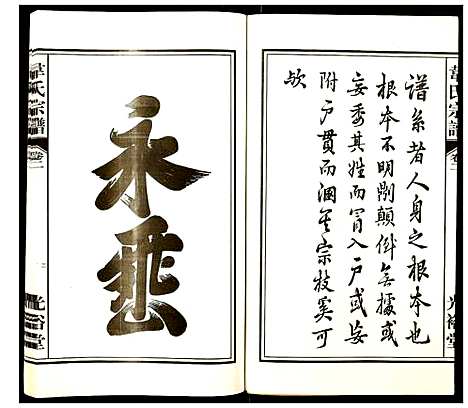 韋氏宗譜
卷二
光裕堂
譜系者人身之根本也
根本不明則顛倒無據或
妄委其姓而冒入戶或妄
附戶貫而溷其宗枝奚可
欤
永垂
韋氏宗譜
卷二
光裕堂